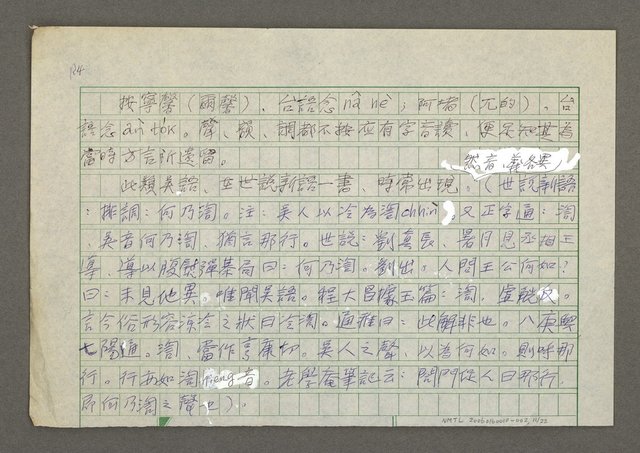 R4
按寧馨（爾馨）、台語念nâ nè；阿堵（兀的）、台
語念a̍n tó͘k。聲、韻、調都不按應有字音讀，便足知其為
當時方言所遺留。
然音、義各異
此類吳語，在世說新語一書，時常出現。（世說新語
：排調：何乃渹。注：吳人以冷為渹chhìn。又正字通：渹
、吳音何乃渹、猶言那行。世說：劉真長、暑月見丞相王
導、導以腹熨彈棊局曰：何乃渹。劉出，人問王公何如？
曰：未見他異。惟聞吳語。程大昌據玉篇：渹，虛觥反。
言今俗形容涼冷之狀曰冷渹。通雅曰：此解非也。八庚與
七陽通。渹、當作亨康切。吳人之聲、以為何如。則呼那
行。行亦如渹heng音。老學庵筆記云：問門從人曰那行，
即何乃渹之聲也）。
NMTL 20060160018-002, 11/22